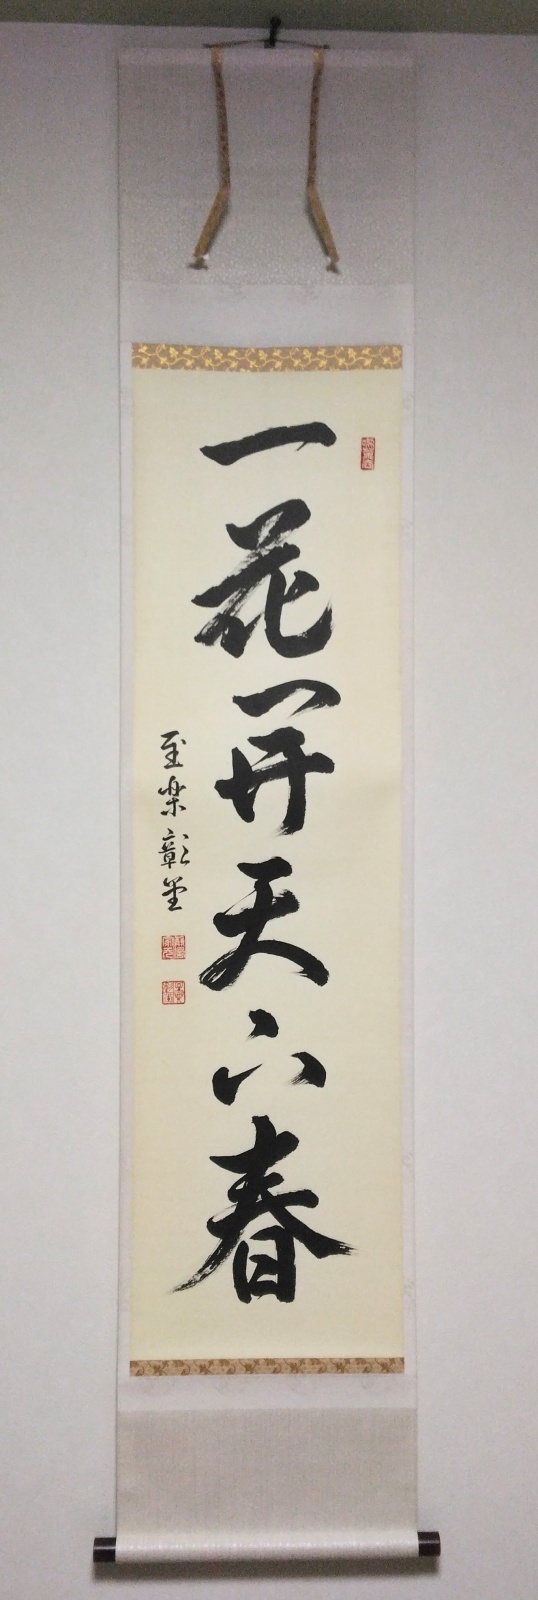 一花開天下春
至楽彰堂